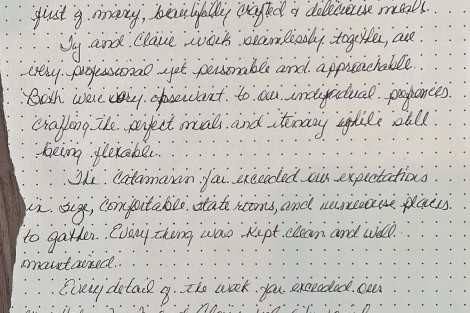 just of many, beautifully crafted & deliciouse meals.
Ty and Claire work seamlessly together, are
very professional yet personable and approachable.
Both were very observant to our indivadual prefrances.
Crafting the perfect meals and itenary while still
being flexable.
The Catamaran far exceeded our expectations
in size, comfortable state rooms, and numerouse places
to gather. Every thing was kept clean and well
maintained.
Every detail of the week far exceeded our